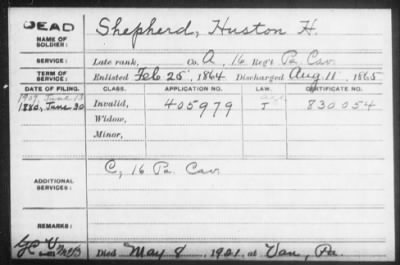 DEAD
NAME OF SOLDIER: Shepherd, Huston H.
SERVICE: Late rank, Co. A, 16 Reg't Pa. Cav.
TERM OF SERVICE: Enlisted Feb 25, 1864 Discharged Aug 11, 1865
DATE OF FILING. CLASS. APPLICATION NO. LAW. CERTIFICATE NO.
1907, June 13
1880, June 30 Invalid, 405979 J 830054
Widow,
Minor,
ADDITIONAL SERVICES: C, 16 Pa. Cav.
REMARKS:
Died May 8, 1921, at Van, Pa.